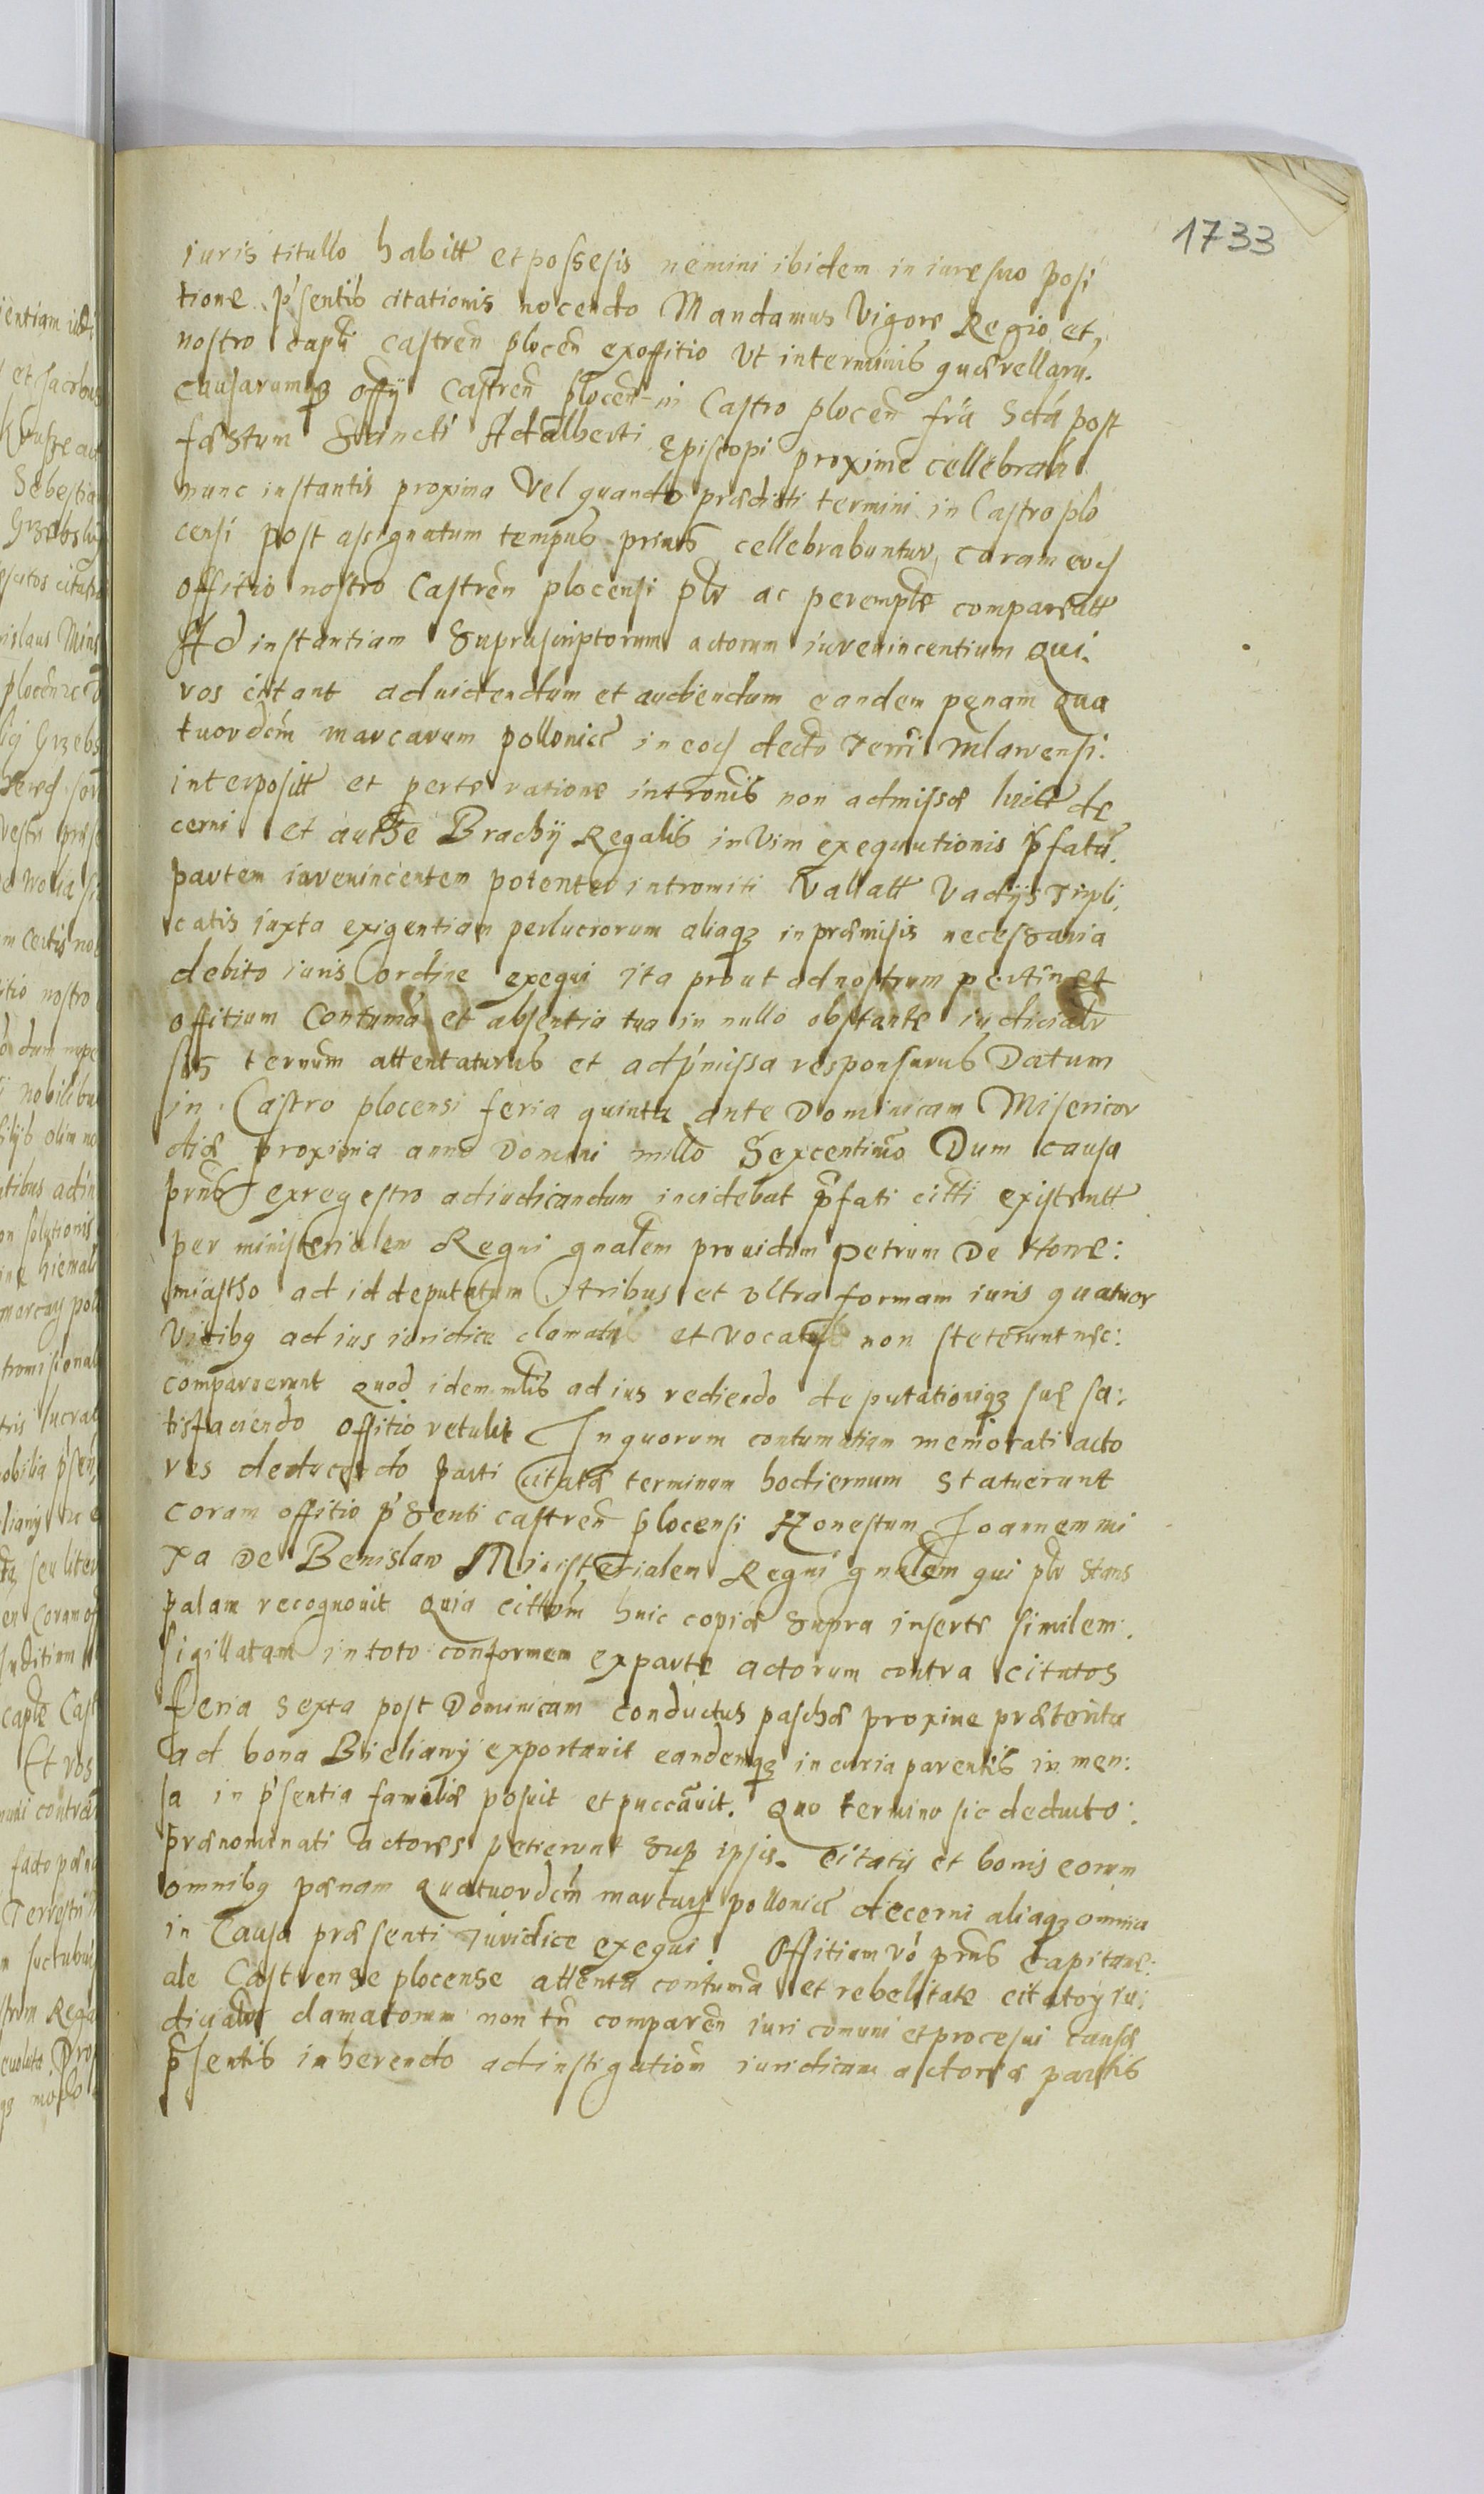 1733
iuris titullo habitt et possesis nemini ibidem in iure suo posi
tione p'sentis citationis nocendo Mandamus Vigore Regio et
nostro capli castren plocen exoffitio Vt interminis quærellarū
causarumq offÿ Castren plocen in Castro plocen fria Scta post
fæstum Sancti Adalberti Episcopi proxime cellebrań
nunc instantis proxima Vel quando prædicti termini in Castro plo
censi post assignatum tempus prius cellebrabuntur, coram eod
offitio nostro Castren plocensi plr ac peremptē compareatt
Ad instantiam Suprascriptorum actorum iurevincentium Qui
vos citant ad videndum et audiendum eandem pęnam Qua
tuordcīm marcarum pollonicæ in eod decto Terri Mlavensi
interpositt et per te ratione intromis non admissæ luitt de
cerni et authe Brachÿ Regalis in Vim exequutionis p̃fatū
partem iurevincentem potenter intromiti Vallatt Vadÿs Tripli
catis iuxta exigentiam perlucrorum aliaq in præmisis necessaria
debito iuris ordine exequi ita prout ad nostrum pertinet
offitium Contumā et absentia tua in nullo obstante iudicialr
sis ternum attentaturus et ad p'missa responsurus Datum
in Castro plocensi feria quinta ante Dominicam Misericor
diæ proxima anno Domini millo Sexcentimo Dum causa
prns exregestro adiudicandum incidebat p̃fati citti existentt
per ministerialem Regni gnalem providum Petrum De Nowe:
miastho ad id deputatum tribus et vltra formam iuris quatuor
Vicibq ad ius iuridice clamatis et vocatis non steterunt nec:
comparuerunt Quod idem mlis ad ius rediendo deputationiq suæ sa:
tisfaciendo offitio retulit In quorum contumatiam memorati acto
res deducendo parti citatæ terminum hodiernum Statuerunt
coram offitio p'senti castren plocensi Honestum Joannem mi
xa De Benislaw Ministerialem Regni gnalem qui plr Stans
palam recognovit Quia cittom huic copiæ Supra insertæ similem
sigillatam in toto conformem exparte actorum contra citatos
feria sexta post Dominicam conductus paschæ proxime præterita
ad bona Bieliany exportavit eandemq in curia parentis in men:
sa in p'sentia familiæ posuit et puccavit. Quo termino sic deducto:
prænominati actores petierunt Sup ipsis citatis et bonis eorum
omnibq pænam Quatuordcīm marcarz pollonicæ decerni aliaq omnia
in Causa præsenti iuridice exequi. Offitium vo prns Capitane:
ale Castrense plocense attenta contumā et rebelitate citatoy iu:
dicialr clamatorum non tn comparen iuri comuni et procesui causæ
p̃sentis inherendo ad instigatiom iuridicam actoreæ partis